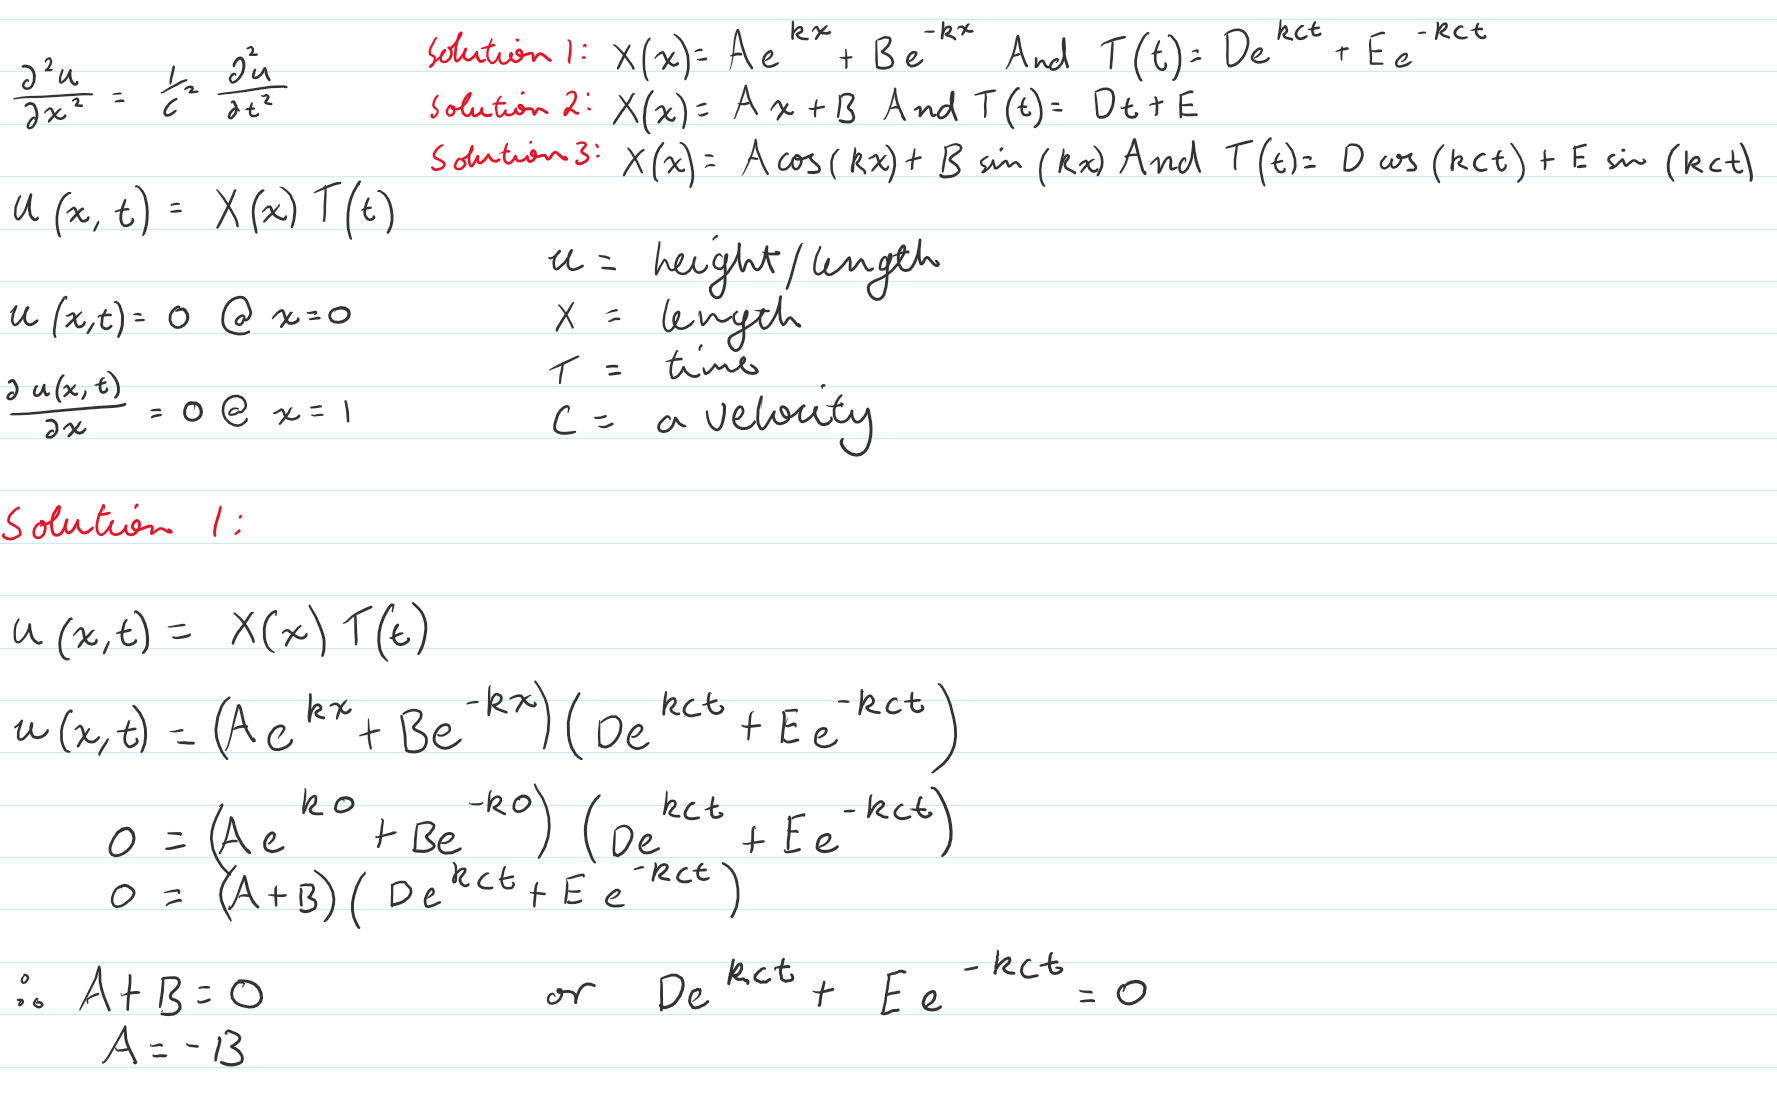 ∂²u/∂x² = 1/c² ∂²u/∂t²
Solution 1: X(x) = Ae^{kx} + Be^{-kx} And T(t) = De^{kct} + Ee^{-kct}
Solution 2: X(x) = Ax + B And T(t) = Dt + E
Solution 3: X(x) = A cos(kx) + B sin(kx) And T(t) = D cos(kct) + E sin(kct)
u(x,t) = X(x) T(t)
u = height/length
u(x,t) = 0 @ x=0
X = length
T = time
∂u(x,t)/∂x = 0 @ x=1
C = a velocity
Solution 1:
u(x,t) = X(x) T(t)
u(x,t) = (Ae^{kx} + Be^{-kx})(De^{kct} + Ee^{-kct})
0 = (Ae^{k0} + Be^{-k0})(De^{kct} + Ee^{-kct})
0 = (A+B)(De^{kct} + Ee^{-kct})
∴ A+B=0 or De^{kct} + Ee^{-kct} = 0
A=-B